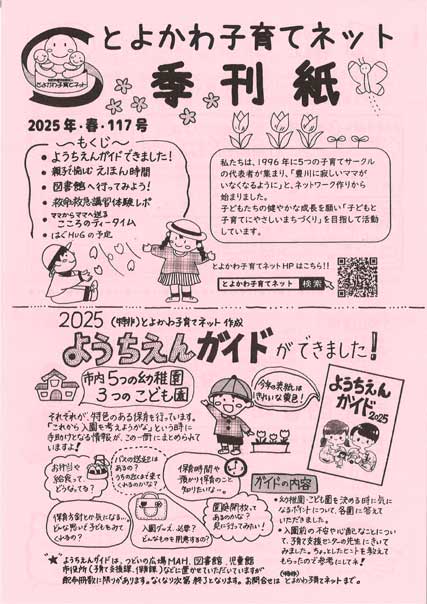 とよかわ子育てネット
とよかわ子育てネット
季刊紙
2025年・春・117号
～もくじ～
● ようちえんガイドできました！
● 親子で愉む えほん時間
● 図書館へ行ってみよう！
● 救命救急講習体験レポ
● ママからママへ送る
こころのティータイム
● はぐHUGの予定
私たちは、1996年に5つの子育てサークル
の代表者が集まり、「豊川に寂しいママが
いなくなるように」と、ネットワーク作りから
始まりました。
子どもたちの健やかな成長を願い「子どもと
子育てにやさしいまちづくり」を目指して活動
しています。
とよかわ子育てネットHPはこちら!!
とよかわ子育てネット 検索
2025 (特非)とよかわ子育てネット 作成
ようちえんガイドができました！
市内5つの幼稚園
3つのこども園
今年の表紙は
きれいな黄色！
ようちえん
ガイド
2025
それぞれが、特色のある保育を行っています。
「これから入園を考えようかな」という時に
手助けとなる情報が、この一冊にまとめられて
いますよ！
お弁当や
給食って
どうなってる？
バスの送迎は
あるの？
うちの近くまで来て
くれるのかな？
保育時間や
預かり保育のこと、
知りたいな…。
保育方針とか気になる…
どんな思いで子どもをみて
くれるの？
入園グッズ、必要？
どんなものを用意するの？
園庭開放って
あるのかな？
見に行ってみたい！
ガイドの内容
● 幼稚園・こども園を決める時に気に
なるポイントについて、各園に答えて
いただきました。
● 入園前の不安や心配なことについ
て、子育て支援センターの先生にきいて
みました。ちょっとしたヒントを教えて
もらったので参考にしてネ！
"★" ようちえんガイドは、つどいの広場MAH、図書館、児童館
市役所(子育て支援課、保育課)などに置かせていただいていますが
配布冊数に限りがあります。なくなり次第終了となります。お問合せは(特非)とよかわ子育てネットまで。